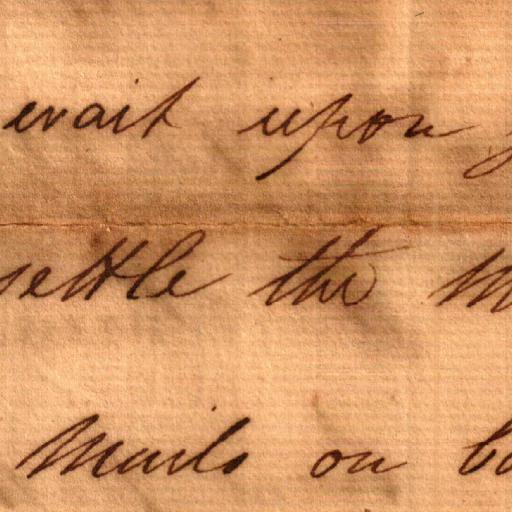 wait upon
settle the
Mails on